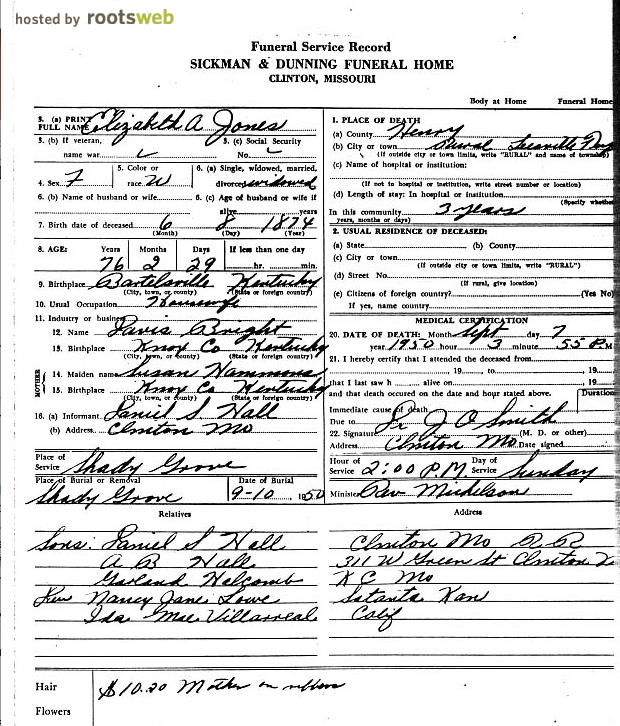 hosted by rootsweb
Funeral Service Record
SICKMAN & DUNNING FUNERAL HOME
CLINTON, MISSOURI
Body at Home Funeral Home
3. (a) PRINT FULL NAME Elizabeth A Jones
3. (b) If veteran, name war
3. (c) Social Security No.
4. Sex F
5. Color or race W
6. (a) Single, widowed, married, divorced widowed
6. (b) Name of husband or wife
6. (c) Age of husband or wife if alive years
7. Birth date of deceased 6 8 1874
(Month) (Day) (Year)
8. AGE: Years Months Days If less than one day
76 2 29 hr. min.
9. Birthplace Bartelsville Kentucky
(City, town, or county) (State or foreign country)
10. Usual Occupation Housewife
11. Industry or business
12. Name Davis Bright
13. Birthplace Knox Co Kentucky
(City, town, or county) (State or foreign country)
MOTHER
14. Maiden name Susan Hammons
15. Birthplace Knox Co Kentucky
(City, town, or county) (State or foreign country)
16. (a) Informant Daniel S Hall
(b) Address Clinton Mo
Place of Service Shady Grove
Place of Burial or Removal Date of Burial
Shady Grove 9-10 1950
1. PLACE OF DEATH
(a) County Henry
(b) City or town Rural
(If outside city or town limits, write "RURAL" and name of township)
(c) Name of hospital or institution:
(If not in hospital or institution, write street number or location)
(d) Length of stay: In hospital or institution
(Specify whether
In this community 3 years
years, months or days)
2. USUAL RESIDENCE OF DECEASED:
(a) State (b) County
(c) City or town
(If outside city or town limits, write "RURAL")
(d) Street No.
(If rural, give location)
(e) Citizens of foreign country? (Yes No)
If yes, name country
MEDICAL CERTIFICATION
20. DATE OF DEATH: Month Sept day 7
year 1950 hour 3 minute 55 P M
21. I hereby certify that I attended the deceased from
, 19 , to , 19
that I last saw h alive on , 19
and that death occured on the date and hour stated above. Duration
Immediate cause of death
Due to
22. Signature Dr J O Smith (M. D. or other)
Address Clinton Mo Date signed
Hour of Service 2:00 P.M. Day of Service Sunday
Minister Rev Mickelson
Relatives Address
Sons: Daniel S Hall Clinton Mo R R
A B Hall 311 W Green St Clinton
Garland Holcomb K C Mo
Nancy Jane Lowe Satanta Kan
Ida Mae Villarreal Calif
Hair $10.20 Mother on ribbon
Flowers